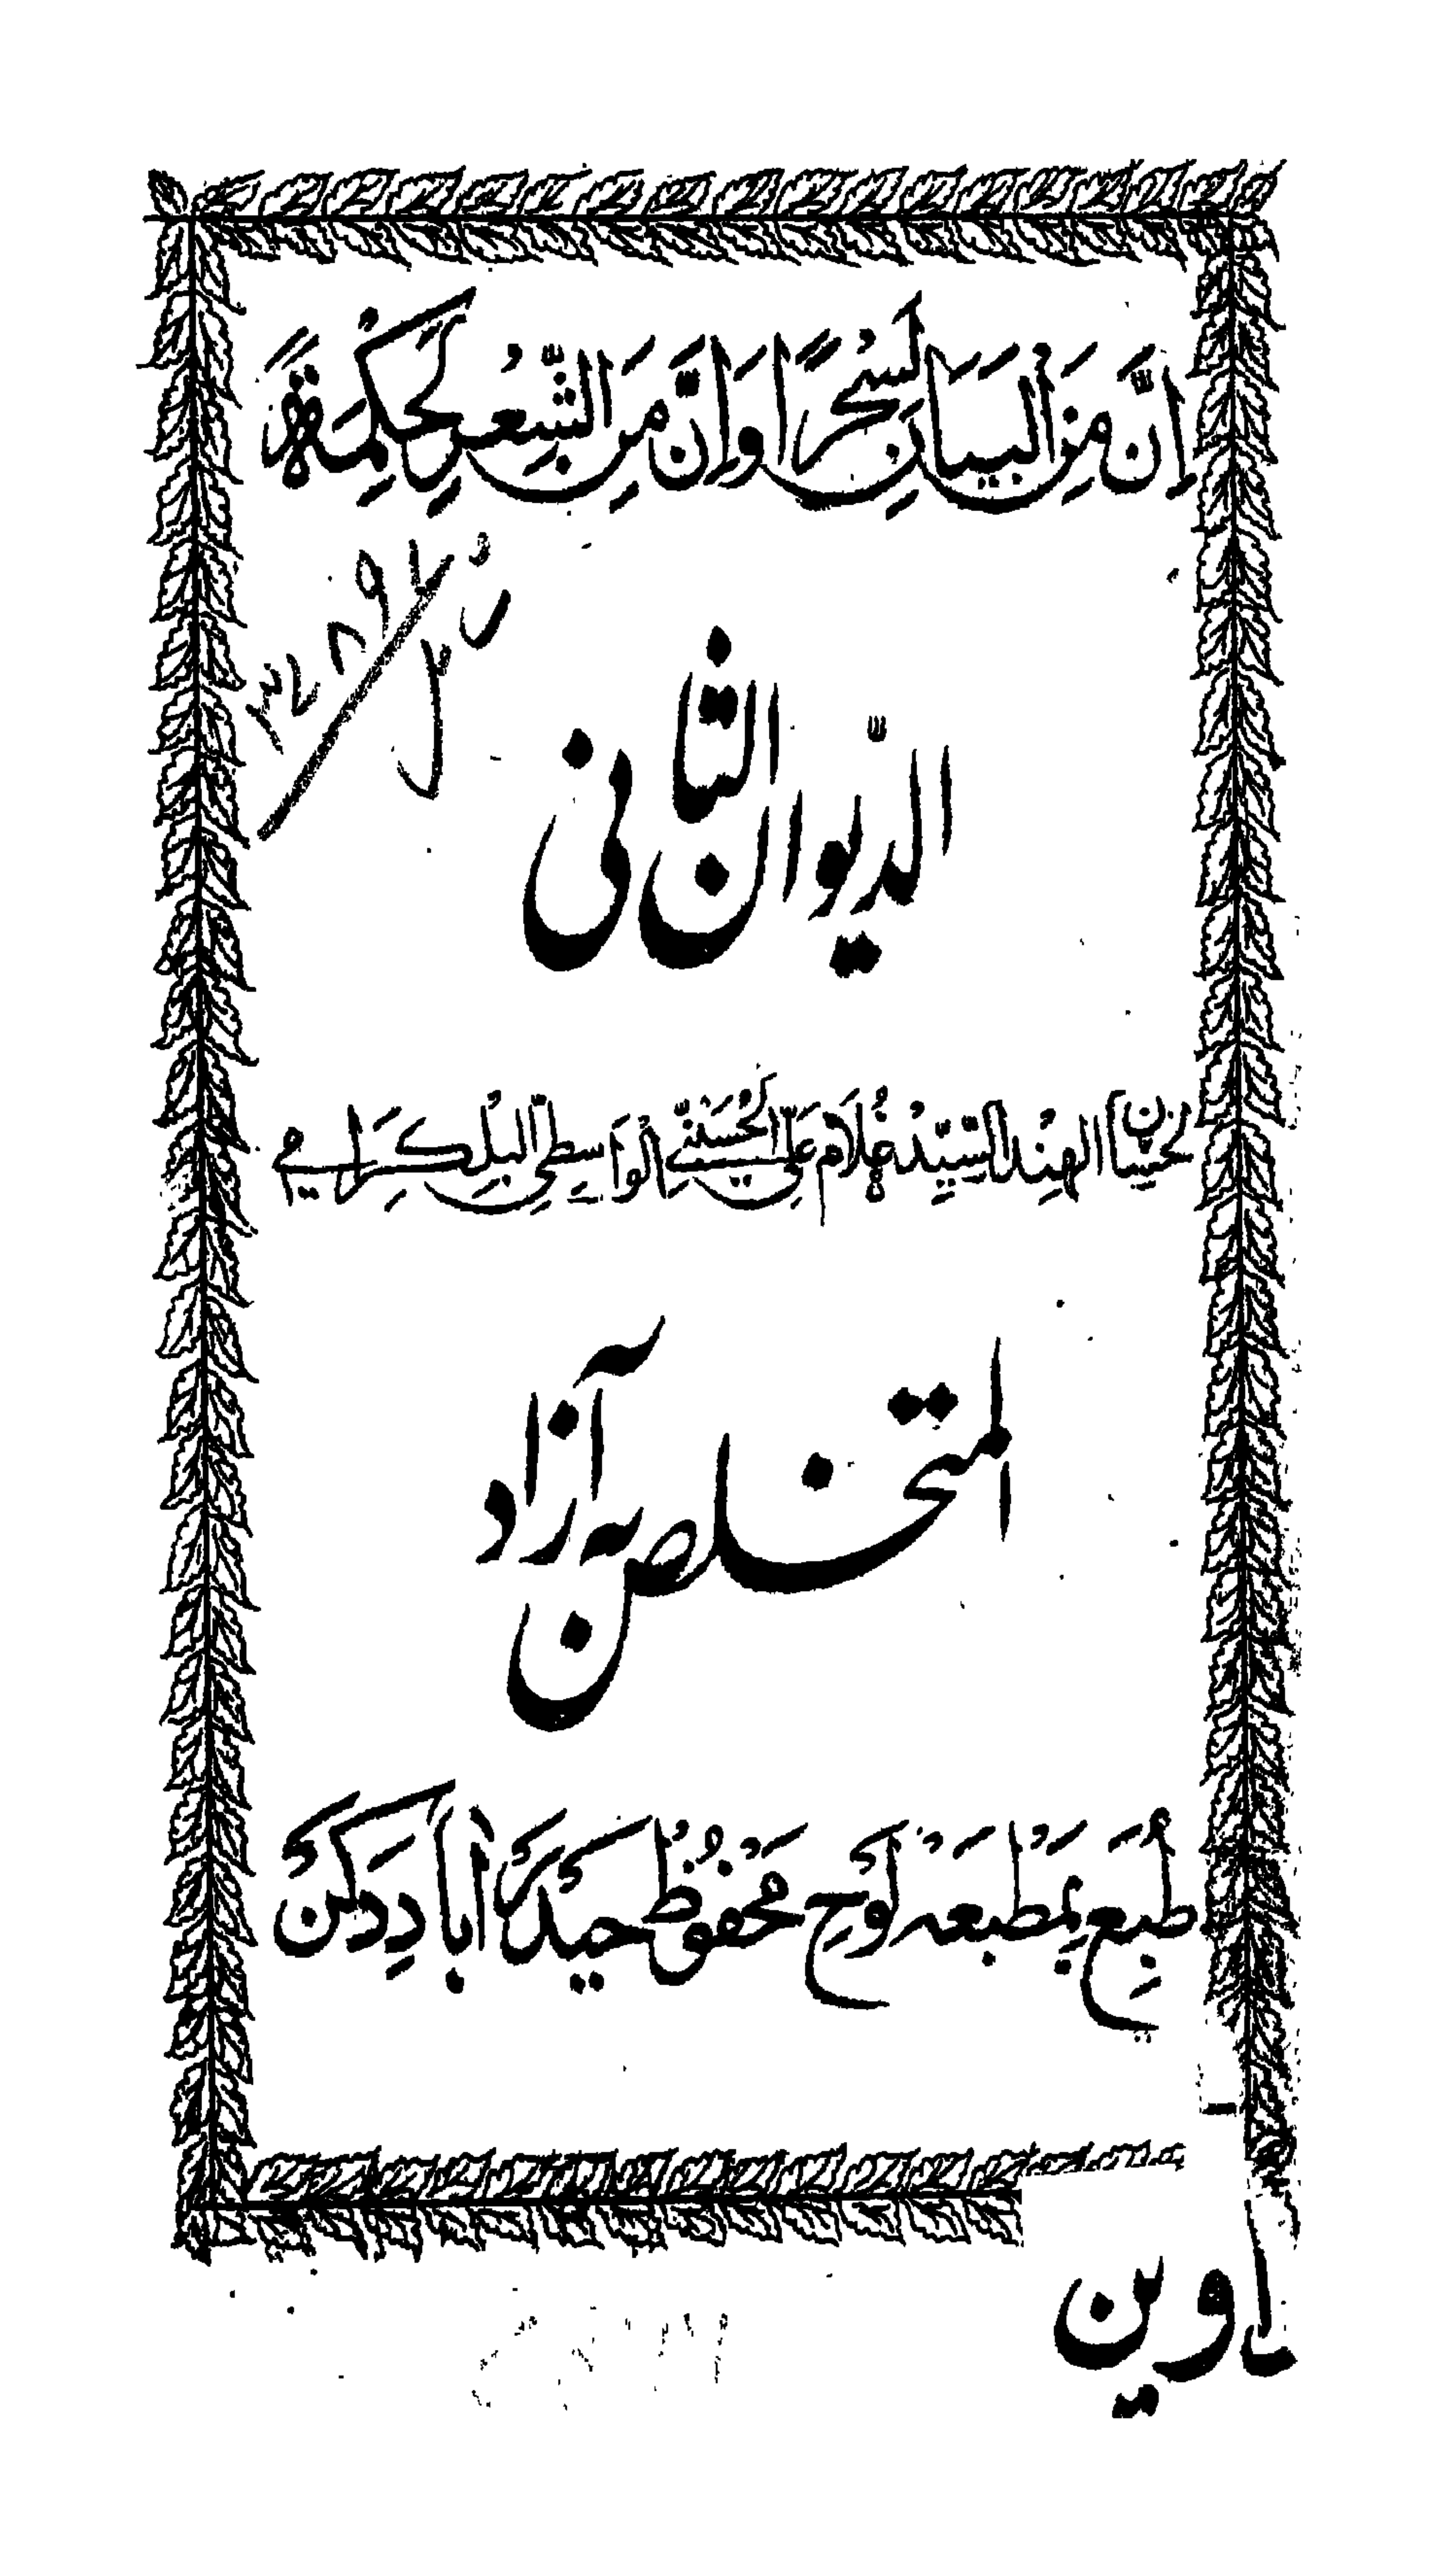 اِنَّ مِنَ الْبَيَانِ لَسِحْرًا وَاِنَّ مِنَ الشِّعْرِ لَحِكْمَةً
الدّيوان الثانى
لحسان الهند السيد غلام على الحسينى الواسطى البلكرامى
المتخلص به آزاد
طبع بمطبعه لوح محفوظ حيدر آباد دكن